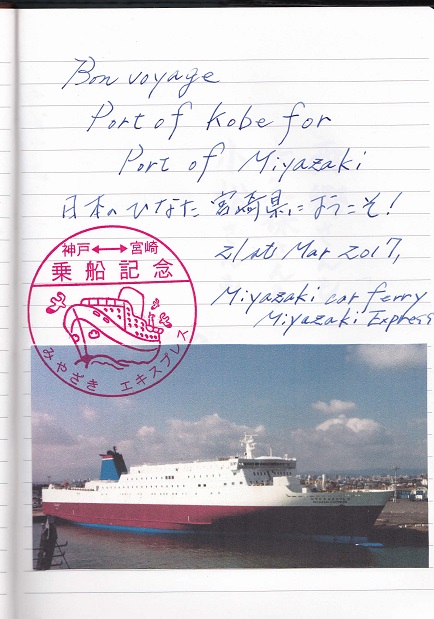 Bon voyage
Port of Kobe for
Port of Miyazaki
日本のひなた 宮崎県にようこそ!
21st Mar 2017,
Miyazaki car ferry
Miyazaki Express
神戸↔宮崎
乗船記念
みやざき エキスプレス